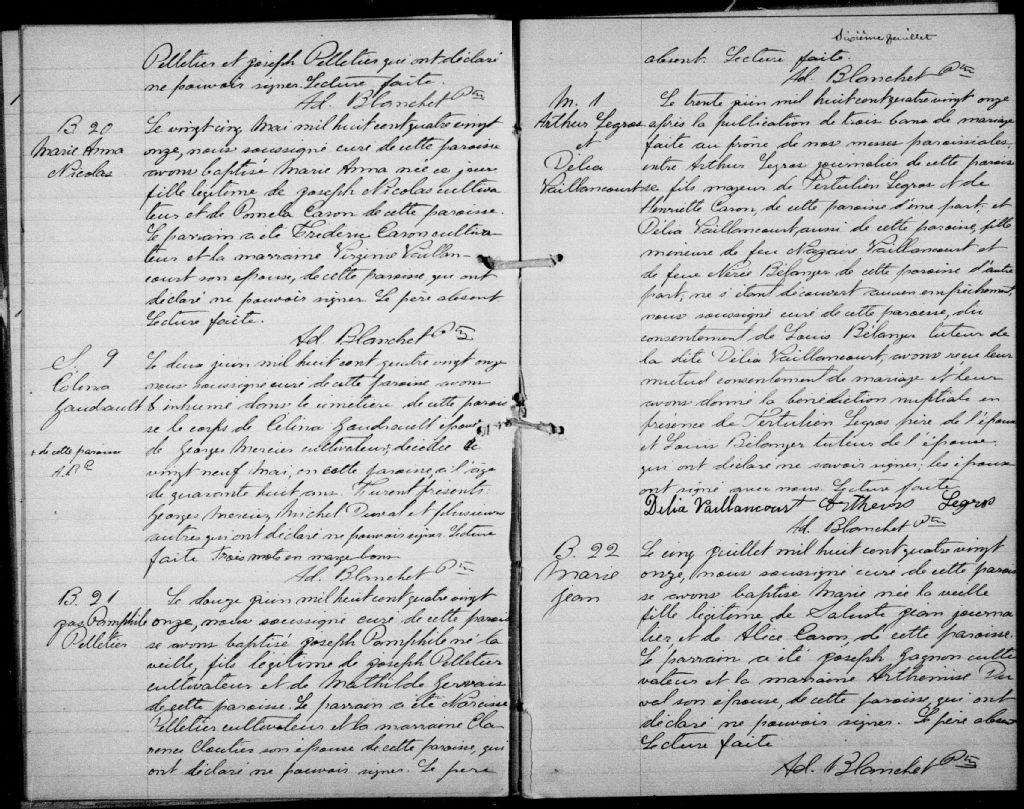 Pelletier et joseph Pelletier qui ont déclaré
ne pouvoir signer. Lecture faite
Ad. Blanchet Ptre
B. 20
Marie Anna
Nicolas
Le vingt cinq Mai mil huit cent quatre vingt
onze, nous soussigné curé de cette paroisse
avons baptisé Marie Anna née ce jour
fille légitime de joseph Nicolas cultiva-
teur et de Pomela Caron de cette paroisse.
Le parrain a été Frédéric Caron cultiva-
teur et la marraine Virginie Vaillan-
court son épouse, de cette paroisse, qui ont
déclaré ne pouvoir signer. Le père absent
Lecture faite.
Ad. Blanchet Ptre
S. 9
Célina
Gaudrault
+ de cette paroisse
A.B.
Le deux juin mil huit cent quatre vingt onze
nous soussigné curé de cette paroisse avons
inhumé dans le cimetière de cette parois-
se le corps de Célina Gaudrault épouse
de Georges Mercier cultivateur, décédée le
vingt neuf Mai, en cette paroisse, à l'âge
de quarante huit ans. Furent présents:
Georges Mercier, Michel Duval et plusieurs
autres qui ont déclaré ne pouvoir signer. Lecture
faite Trois mots en marge bons
Ad. Blanchet Ptre
B. 21
jos Pamphile
Pelletier
Le douze juin mil huit cent quatre vingt
onze, nous soussigné curé de cette parois-
se avons baptisé joseph Pamphile né la
veille, fils légitime de joseph Pelletier
cultivateur et de Mathilde Gervais
de cette paroisse. Le parrain a été Narcisse
Pelletier cultivateur et la marraine Cla-
rence Cloutier son épouse de cette paroisse, qui
ont déclaré ne pouvoir signer. Le père
Sixième feuillet
absent. Lecture faite.
Ad. Blanchet Ptre
M. 1
Arthur Legros
et
Délia
Vaillancourt
Le trente juin mil huit cent quatre vingt onze
après la publication de trois bans de mariage
faite au prône de nos messes paroissiales,
entre Arthur Legros journalier de cette parois-
se fils majeur de Tertulien Legros et de
Henriette Caron, de cette paroisse d'une part, et
Délia Vaillancourt, aussi de cette paroisse, fille
mineure de feu Nazaire Vaillancourt et
de feue Nérée Bélanger de cette paroisse d'autre
part, ne s'étant découvert aucun empêchement,
nous soussigné curé de cette paroisse, du
consentement de Louis Bélanger tuteur de
la dite Délia Vaillancourt, avons reçu leur
mutuel consentement de mariage et leur
avons donné la bénédiction nuptiale en
présence de Tertulien Legros père de l'époux
et Louis Bélanger tuteur de l'épouse
qui ont déclaré ne savoir signer; les époux
ont signé avec nous. Lecture faite
Délia Vaillancourt Legros
Ad. Blanchet Ptre
B. 22
Marie
Jean
Le cinq juillet mil huit cent quatre vingt
onze, nous soussigné curé de cette parois-
se avons baptisé Marie née la veille
fille légitime de Saluste jean journa-
lier et de Alice Caron, de cette paroisse.
Le parrain a été joseph Gagnon culti-
vateur et la marraine Arthémise Du-
val son épouse, de cette paroisse, qui ont
déclaré ne pouvoir signer. Le père absent
Lecture faite
Ad. Blanchet Ptre